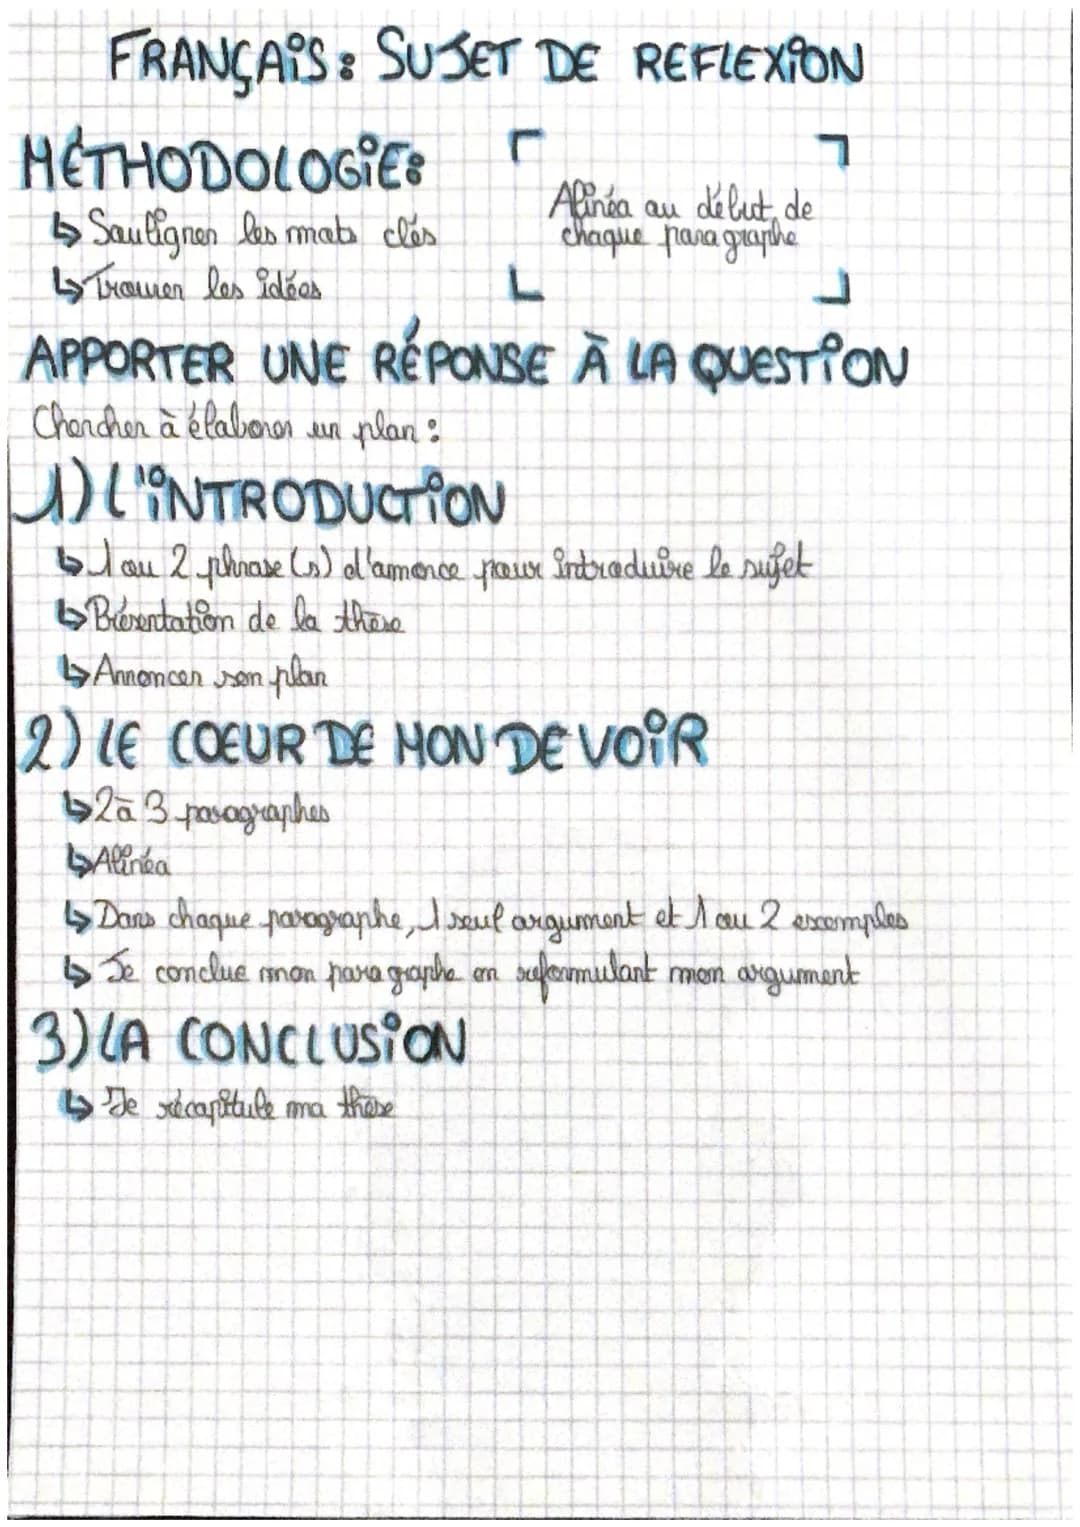 FRANÇAIS : SUJET DE REFLEXION
MÉTHODOLOGIE:
↳ Souligner les mots clés
↳ Trouver les idées
Alinéa au début de
chaque paragraphe
APPORTER UNE RÉPONSE À LA QUESTION
Chercher à élaborer un plan :
1) L'INTRODUCTION
↳ 1 ou 2 phrase(s) d'amence pour introduire le sujet
↳ Présentation de la thèse
↳ Annoncer son plan
2) LE COEUR DE MON DEVOIR
↳ 2 à 3 paragraphes
↳ Alinéa
↳ Dans chaque paragraphe, 1 seul argument et 1 ou 2 exemples
↳ Je conclue mon paragraphe en reformulant mon argument
3) LA CONCLUSION
↳ Je récapitule ma thèse